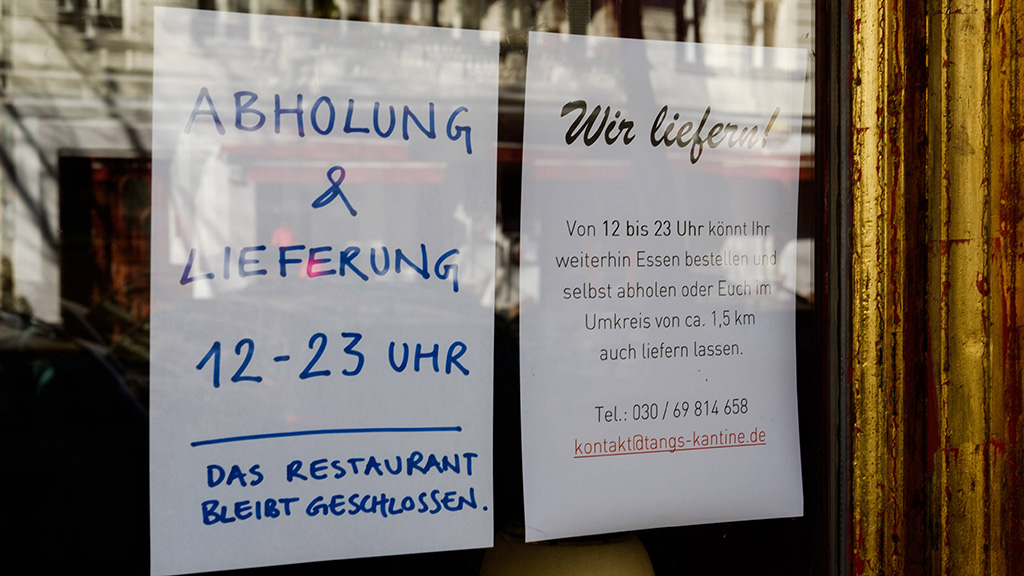 ABHOLUNG
&
LIEFERUNG
12-23 UHR
DAS RESTAURANT
BLEIBT GESCHLOSSEN.
Wir liefern!
Von 12 bis 23 Uhr könnt Ihr
weiterhin Essen bestellen und
selbst abholen oder Euch im
Umkreis von ca. 1,5 km
auch liefern lassen.
Tel.: 030 / 69 814 658
kontakt@tangs-kantine.de